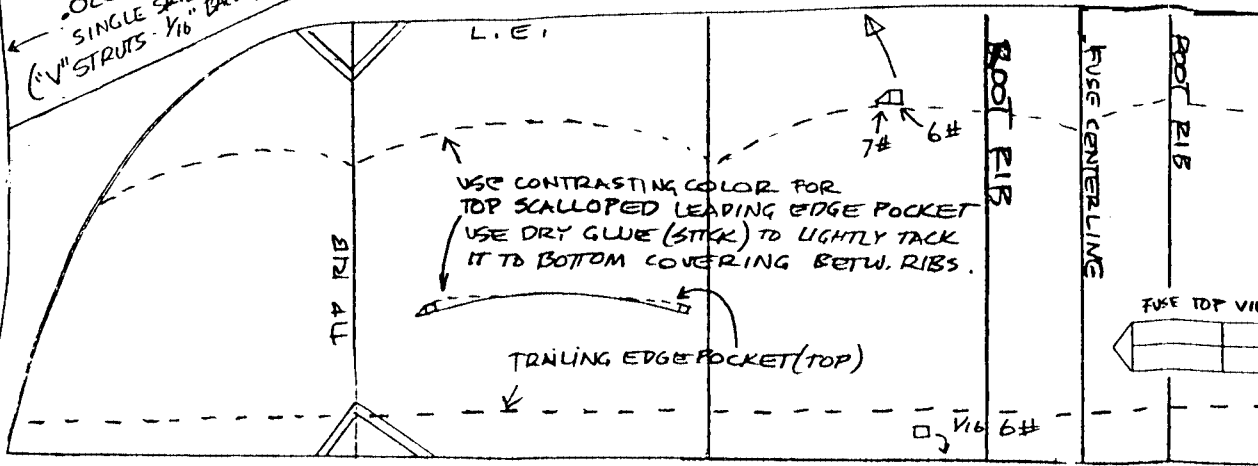 SINGLE
("V" STRUTS - 1/16"
L.E.
ROOT RIB
FUSE CENTERLINE
ROOT RIB
7#
6#
USE CONTRASTING COLOR FOR
TOP SCALLOPED LEADING EDGE POCKET
USE DRY GLUE (STICK) TO LIGHTLY TACK
IT TO BOTTOM COVERING BETW. RIBS.
RIB
FUSE TOP
TRAILING EDGE POCKET (TOP)
1/16 6#